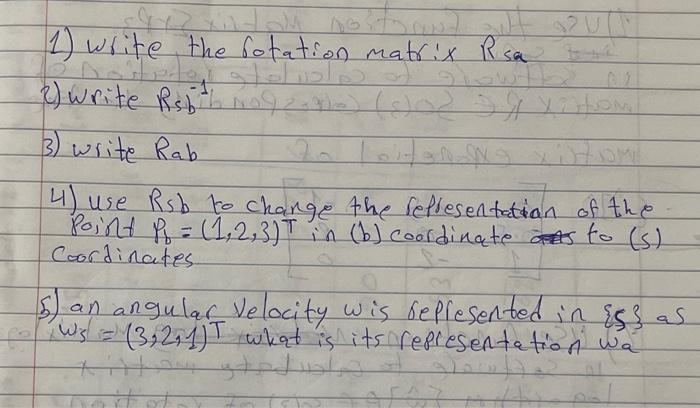 1) write the rotation matrix Rsa
2) write Rsb⁻¹
3) write Rab
4) use Rsb to change the representation of the
Point Pb = (1,2,3)ᵀ in (b) coordinate to (s)
Coordinates
5) an angular velocity w is represented in {s} as
ws = (3,2,1)ᵀ what is its representation wa